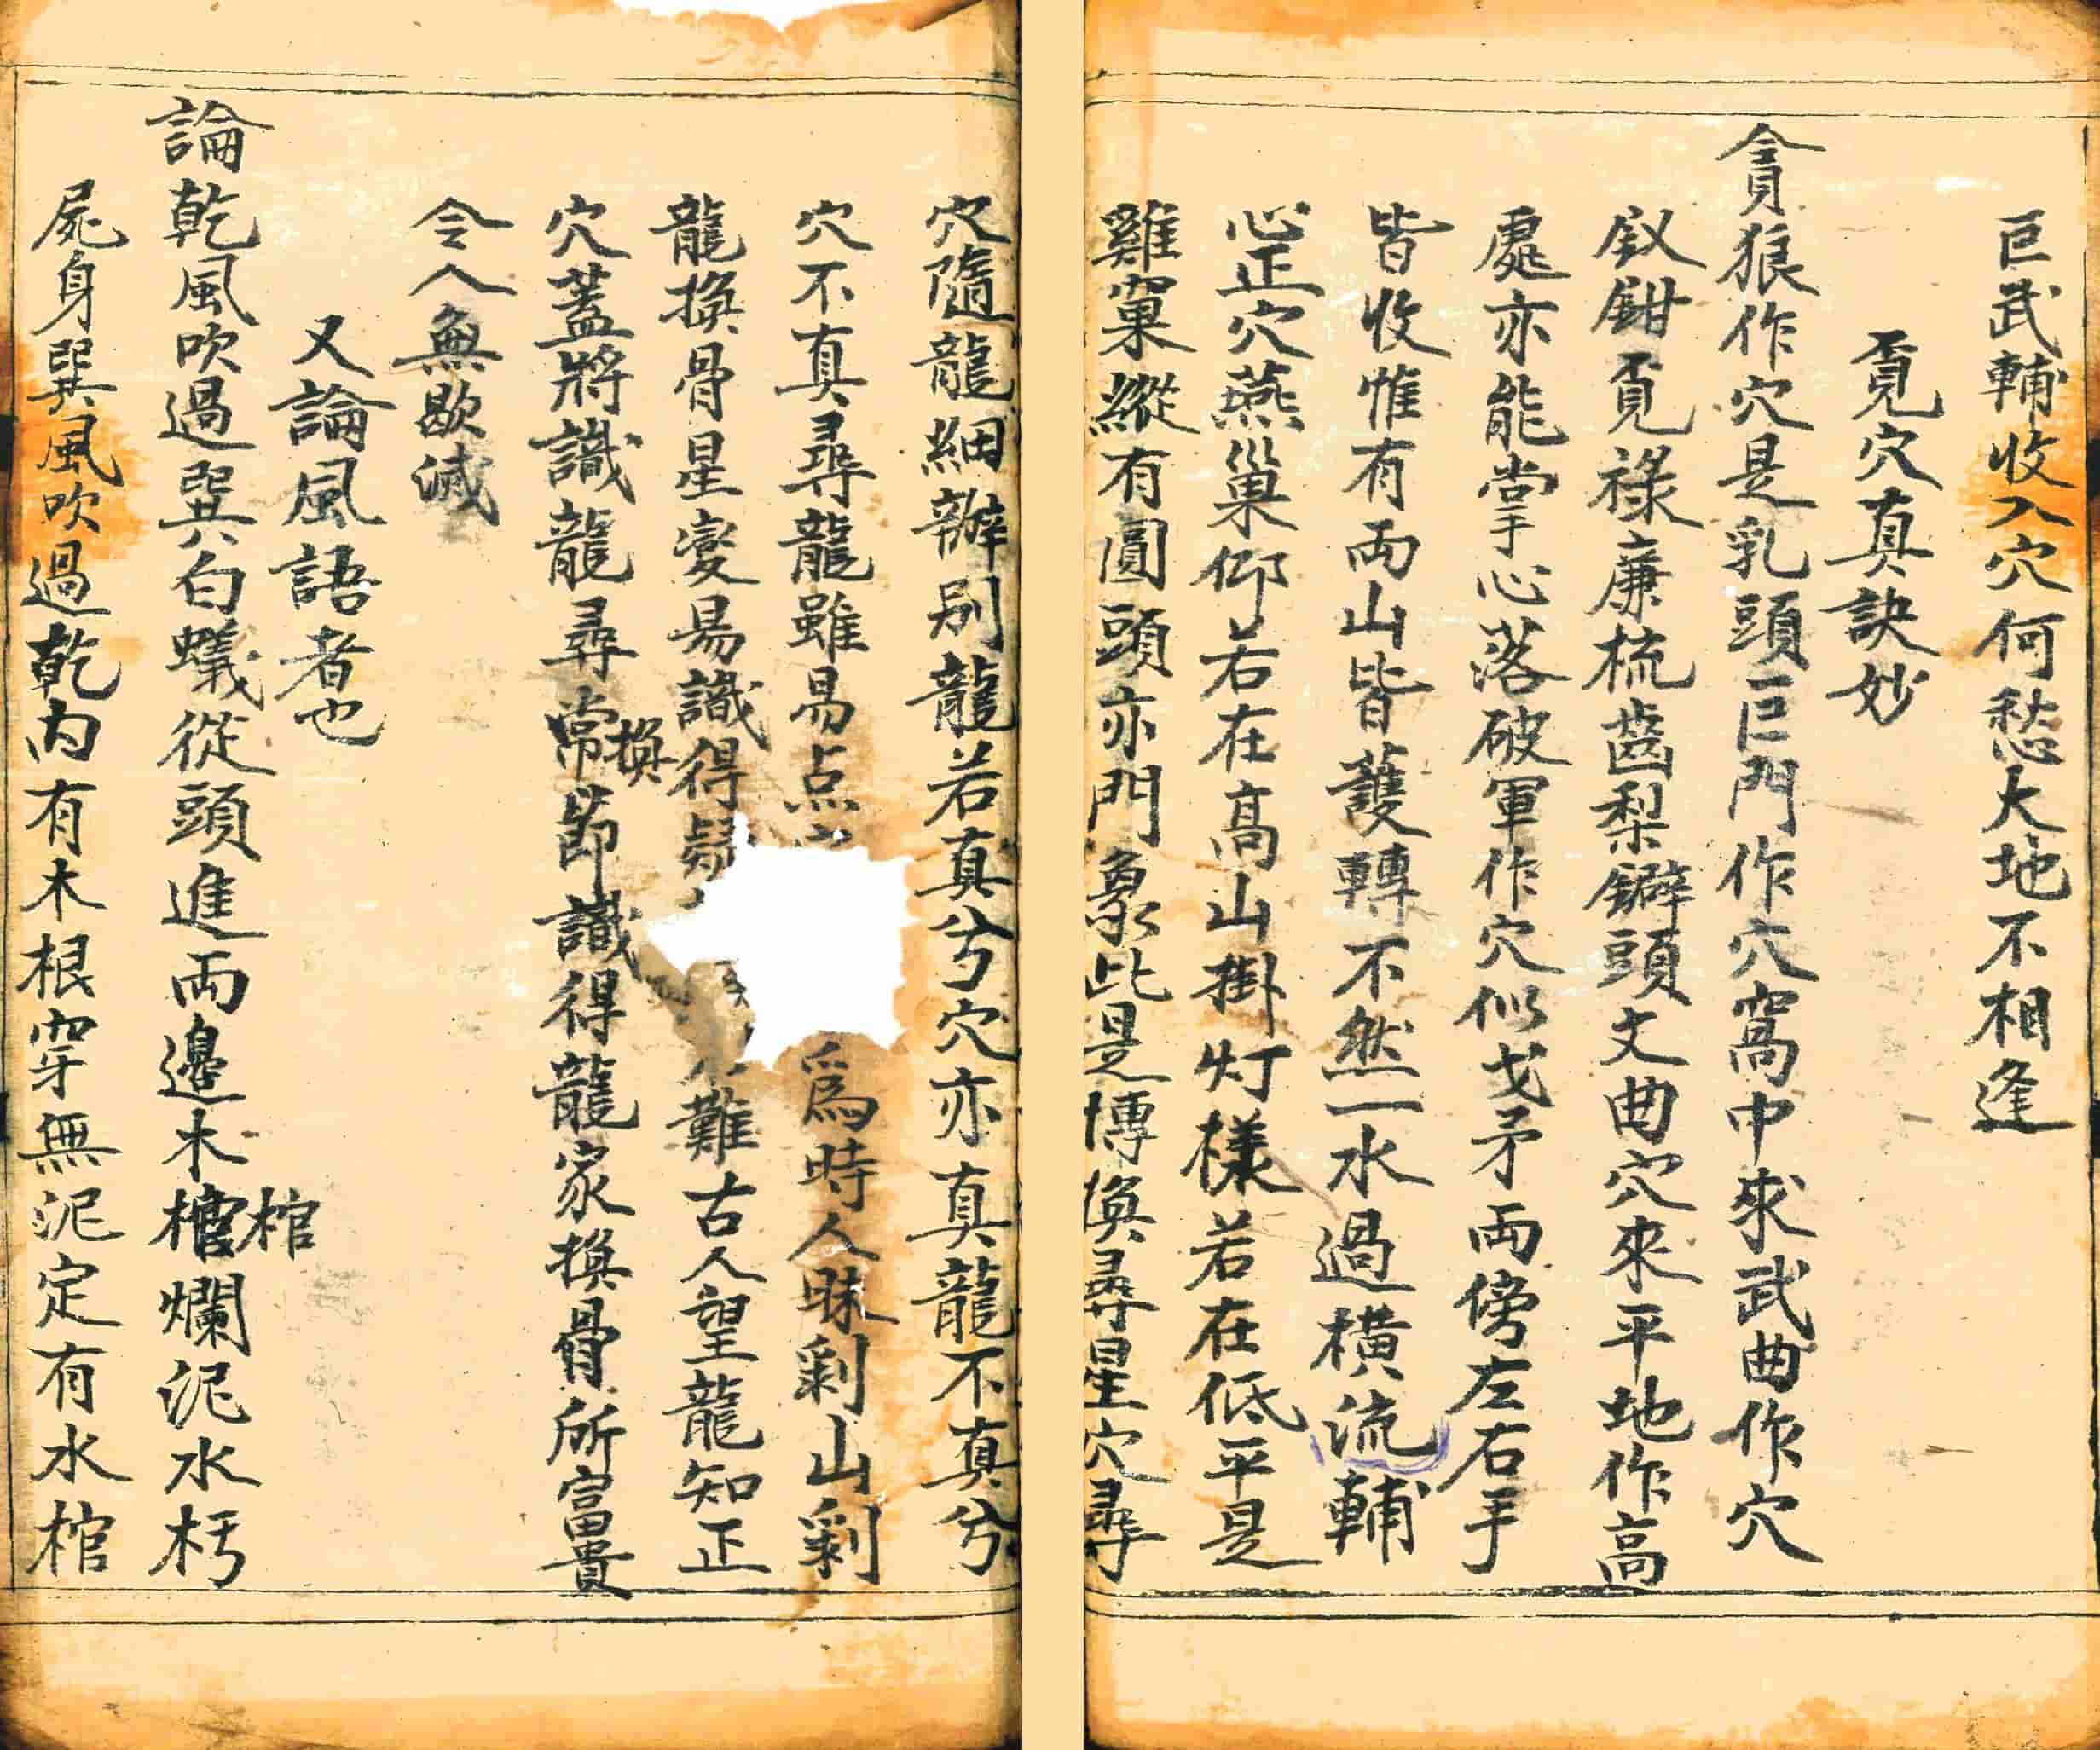 巨武輔收入穴何愁大地不相逢
覓穴真訣妙
貪狼作穴是乳頭巨門作穴窩中求武曲作穴
釵鉗覓祿廉梳齒梨鐴頭文曲穴來平地作高
處亦能掌心落破軍作穴似戈矛兩傍左右手
皆收惟有兩山皆護轉不然一水過橫流輔
心正穴燕巢仰若在高山掛灯樣若在低平是
雞窠縱有圓頭亦門象此是博換尋星穴尋
穴隨龍細辦別龍若真兮穴亦真龍不真兮
穴不真尋龍雖易点 爲時人昧剝山剝
龍換骨星變易識得 難古人望龍知正
穴蓋將識龍尋常節識得龍家換骨所富貴
換
令人無歇滅
又論風語者也
論乾風吹過巽白蟻從頭進兩邊木棺爛泥水朽
棺
屍身巽風吹過乾內有木根穿無泥定有水棺